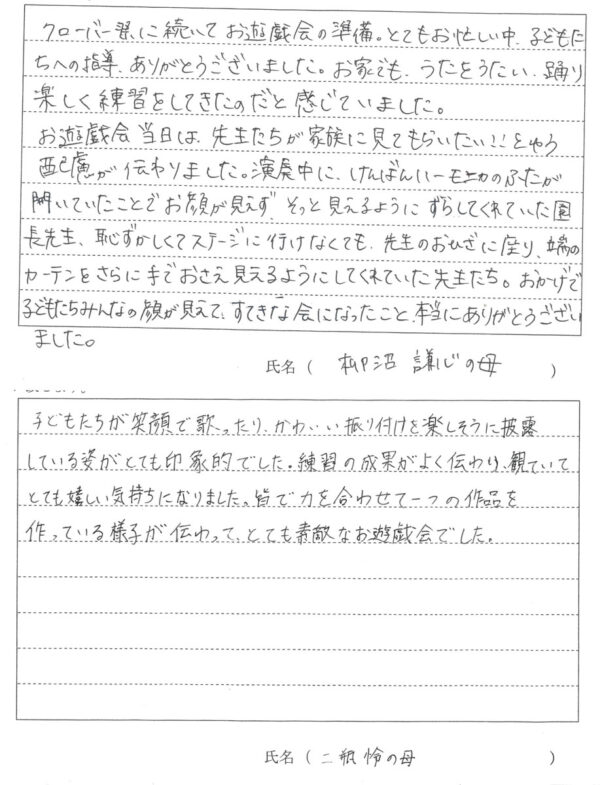 クローバー習に続いてお遊戯会の準備。とてもお忙しい中、子どもた
ちへの指導、ありがとうございました。お家でも、うたをうたい、踊り
楽しく練習をしてきたのだと感じていました。
お遊戯会当日は、先生たちが家族に見てもらいたい!!とゆう
配慮が伝わりました。演奏中に、けんばんハーモニカのふたが
開いていたことでお顔が見えず、そっと見えるようにずらしてくれていた園
長先生、恥ずかしくてステージに行けなくても、先生のおひざに座り、端の
カーテンをさらに手でおさえ見えるようにしてくれていた先生たち。おかげで
子どもたちみんなの顔が見えて、すてきな会になったこと、本当にありがとうござい
ました。
氏名（ 柳沼 謙心の母 ）
子どもたちが笑顔で歌ったり、かわいい振り付けを楽しそうに披露
している姿がとても印象的でした。練習の成果がよく伝わり、観ていて
とても嬉しい気持ちになりました。皆で力を合わせて一つの作品を
作っている様子が伝わって、とても素敵なお遊戯会でした。
氏名（ 二瓶 怜の母 ）